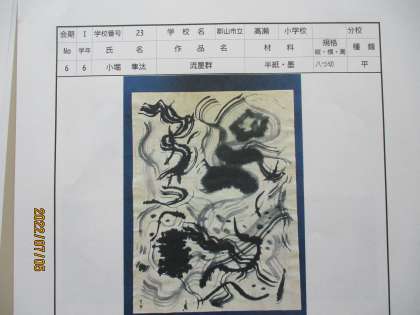 会期 I 学校番号 23 学校名 郡山市立 高瀬 小学校 規格 分校
縦・横・高 種類
No 学年 氏名 作品名 材料
6 6 小堀 隼汰 流星群 半紙・墨 八つ切 平
2022/07/05